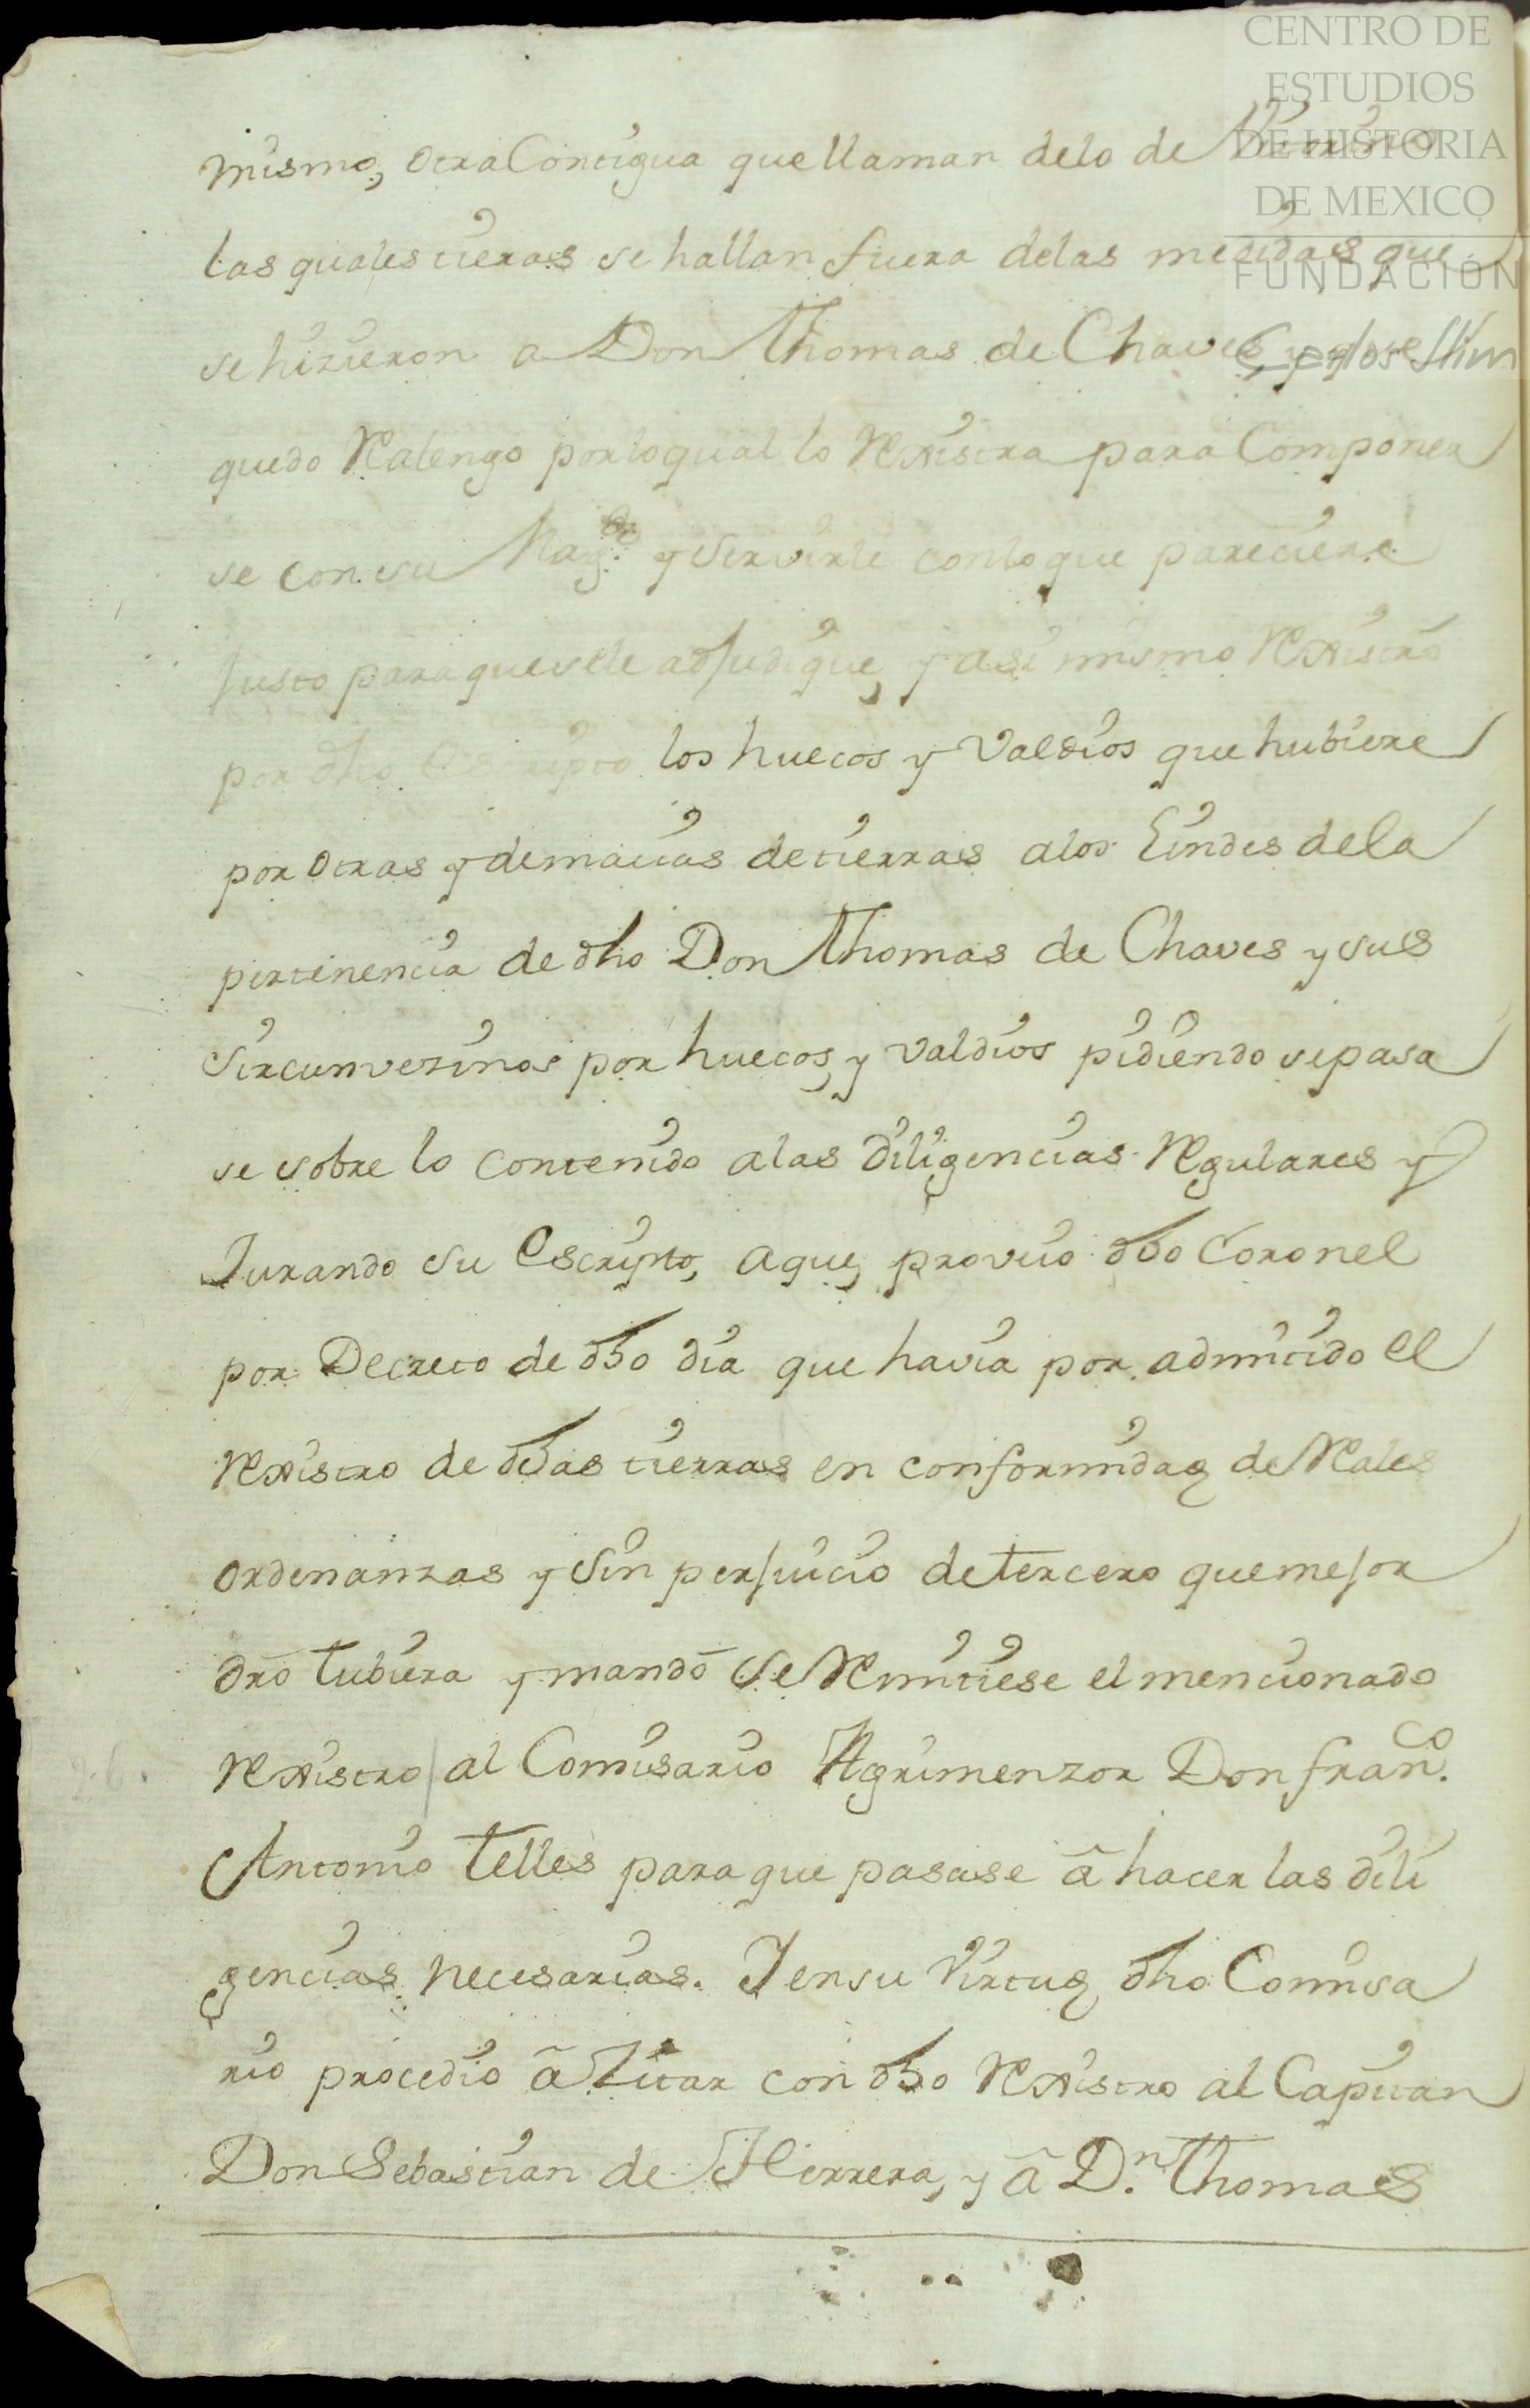 CENTRO DE
ESTUDIOS
DE HISTORIA
DE MEXICO
FUNDACIÓN
Carlos Slim
mismo, otra Contigua que llaman delo de
las quales tieras se hallan fuera delas medidas que
se hizieron a Don Thomas de Chaves, y que
quedo Realengo por loqual lo Rexistra para Componer
se con su Mag.d y servirle conloque pareciere
justo para quesele adjudique, y asi mismo Rexistró
por dho Escripto los huecos y Valdios que hubiere
por otras y demacias detierras alos Lindes dela
pertenencia de dho Don Thomas de Chaves y sus
Sircumvezinos por huecos, y valdios pidiendo sepasa
se sobre lo contenido alas diligencias Regulares y
Jurando su Escripto, aque, proveio dho Coronel
por Decreto de dho dia que havia por admitido el
Rexistro de dhas tierras en conformidad de Reales
ordenanzas y Sin perjuicio detercero quemejor
dro tubiera y mandó se Remitiese el mencionado
Rexistro al Comisario Agrimenzor Don fran.co
Antonio telles para que pasase â hacer las dili
gencias necesarias. Y ensu Virtud, dho Comisa
rio procedio â Zitar con dho Rexistro al Capitan
Don Sebastian de Herrera, y â D.n Thomas